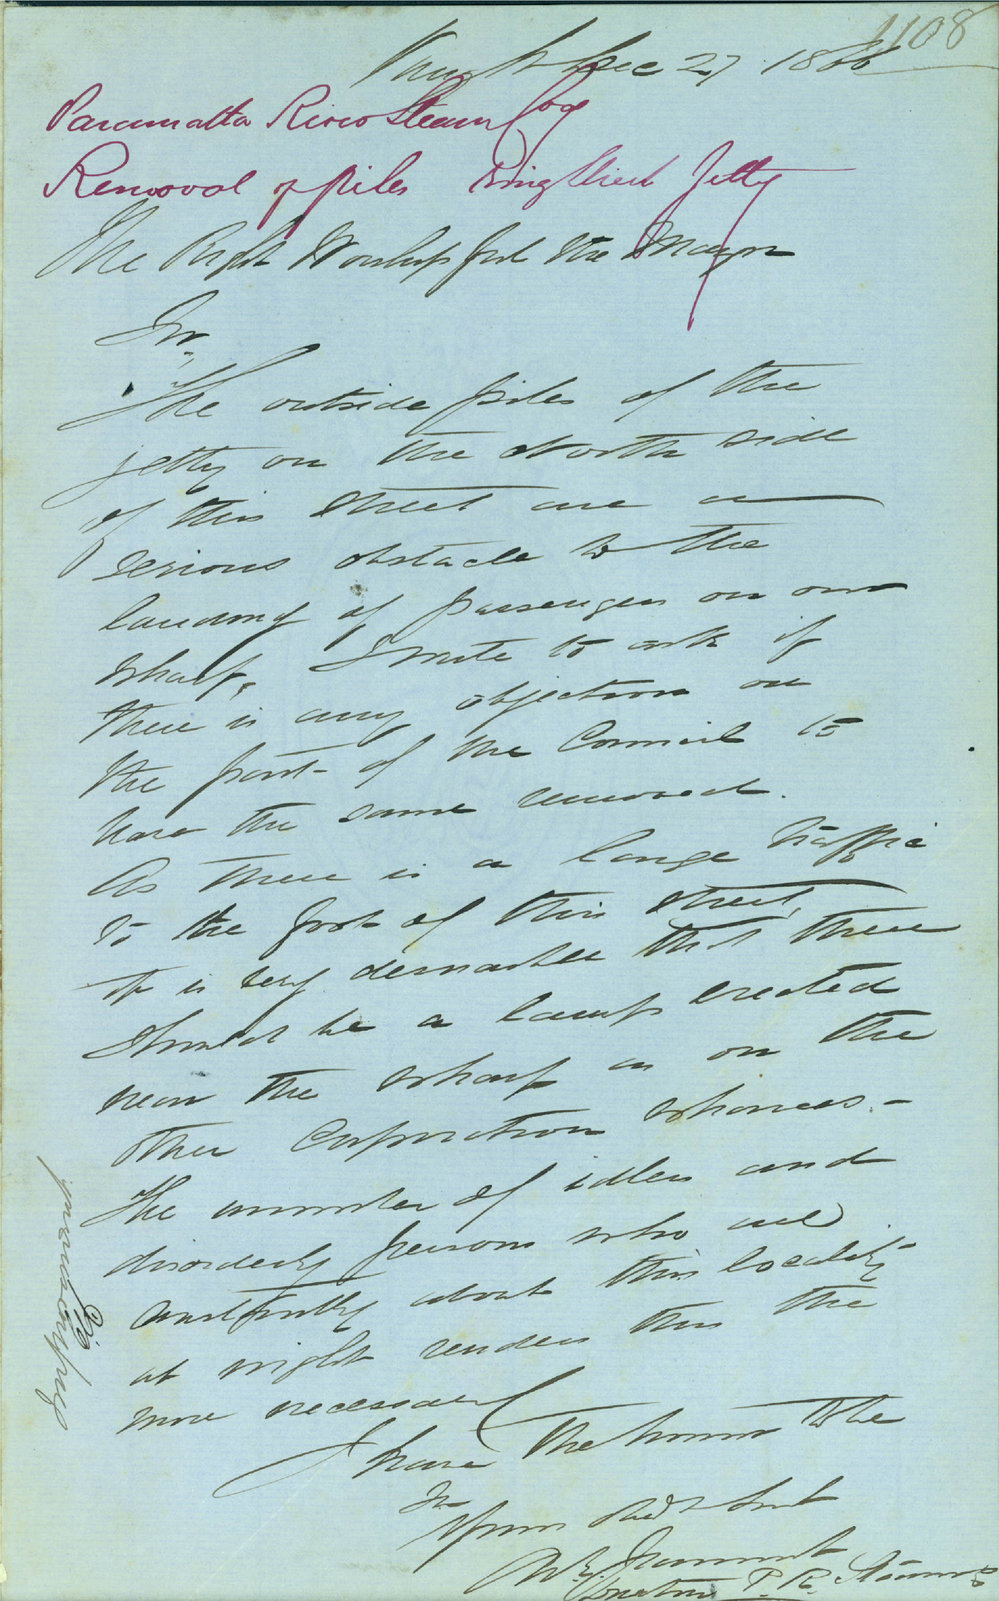 1108
Dec 27 1866
Paramatta River Steam Coy
Removal of piles King Street Jetty
The Right Worshipful the Mayor
Sir,
The outside piles of the
jetty on the North side
of this street are a
serious obstacle to the
landing of passengers on our
wharf, I write to ask if
there is any objection on
the part of the Council to
have the same removed.
As there is a large traffic
to the foot of this street,
it is very desirable that there
should be a lamp erected
near the wharf as on the
other Corporation wharves. -
The number of idlers and
disorderly persons who are
constantly about this locality
at night renders this the
more necessary
I have the honor to be
Sir
Your obdt Servt
P. R. Steamers